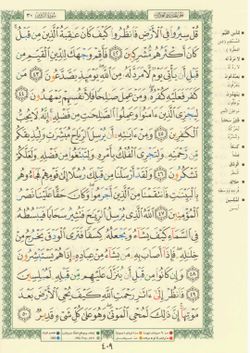 قُلْ سِيرُوا۟ فِى ٱلْأَرْضِ فَٱنظُرُوا۟ كَيْفَ كَانَ عَـٰقِبَةُ ٱلَّذِينَ مِن قَبْلُ
كَانَ أَكْثَرُهُم مُّشْرِكِينَ ٤٢ فَأَقِمْ وَجْهَكَ لِلدِّينِ ٱلْقَيِّمِ مِن
قَبْلِ أَن يَأْتِىَ يَوْمٌ لَّا مَرَدَّ لَهُۥ مِنَ ٱللَّهِ يَوْمَئِذٍ يَصَّدَّعُونَ ٤٣ مَن
كَفَرَ فَعَلَيْهِ كُفْرُهُۥ وَمَنْ عَمِلَ صَـٰلِحًا فَلِأَنفُسِهِمْ يَمْهَدُونَ ٤٤
لِيَجْزِىَ ٱلَّذِينَ ءَامَنُوا۟ وَعَمِلُوا۟ ٱلصَّـٰلِحَـٰتِ مِن فَضْلِهِۦٓ إِنَّهُۥ لَا يُحِبُّ
ٱلْكَـٰفِرِينَ ٤٥ وَمِنْ ءَايَـٰتِهِۦٓ أَن يُرْسِلَ ٱلرِّيَاحَ مُبَشِّرَٰتٍ وَلِيُذِيقَكُم
مِّن رَّحْمَتِهِۦ وَلِتَجْرِىَ ٱلْفُلْكُ بِأَمْرِهِۦ وَلِتَبْتَغُوا۟ مِن فَضْلِهِۦ وَلَعَلَّكُمْ
تَشْكُرُونَ ٤٦ وَلَقَدْ أَرْسَلْنَا مِن قَبْلِكَ رُسُلًا إِلَىٰ قَوْمِهِمْ فَجَآءُوهُم
بِٱلْبَيِّنَـٰتِ فَٱنتَقَمْنَا مِنَ ٱلَّذِينَ أَجْرَمُوا۟ وَكَانَ حَقًّا عَلَيْنَا نَصْرُ
ٱلْمُؤْمِنِينَ ٤٧ ٱللَّهُ ٱلَّذِى يُرْسِلُ ٱلرِّيَـٰحَ فَتُثِيرُ سَحَابًا فَيَبْسُطُهُۥ
فِى ٱلسَّمَآءِ كَيْفَ يَشَآءُ وَيَجْعَلُهُۥ كِسَفًا فَتَرَى ٱلْوَدْقَ يَخْرُجُ مِنْ
خِلَـٰلِهِۦ فَإِذَآ أَصَابَ بِهِۦ مَن يَشَآءُ مِنْ عِبَادِهِۦٓ إِذَا هُمْ يَسْتَبْشِرُونَ
٤٨ وَإِن كَانُوا۟ مِن قَبْلِ أَن يُنَزَّلَ عَلَيْهِم مِّن قَبْلِهِۦ لَمُبْلِسِينَ
٤٩ فَٱنظُرْ إِلَىٰٓ ءَاثَـٰرِ رَحْمَتِ ٱللَّهِ كَيْفَ يُحْىِ ٱلْأَرْضَ بَعْدَ
مَوْتِهَآ إِنَّ ذَٰلِكَ لَمُحْىِ ٱلْمَوْتَىٰ وَهُوَ عَلَىٰ كُلِّ شَىْءٍ قَدِيرٌ ٥٠
٤٠٩